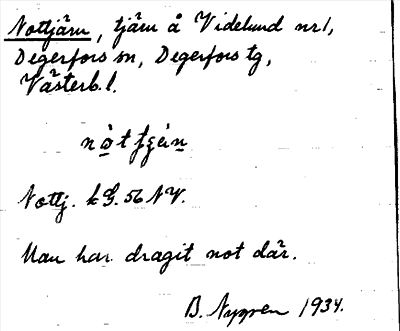 Nottjärn, tjärn å Videlund nr 1,
Degerfors sn, Degerfors tg,
Västerb. l.
Nottj. k G. 56 NV.
Man har dragit not där.
B. Nyppen 1934.